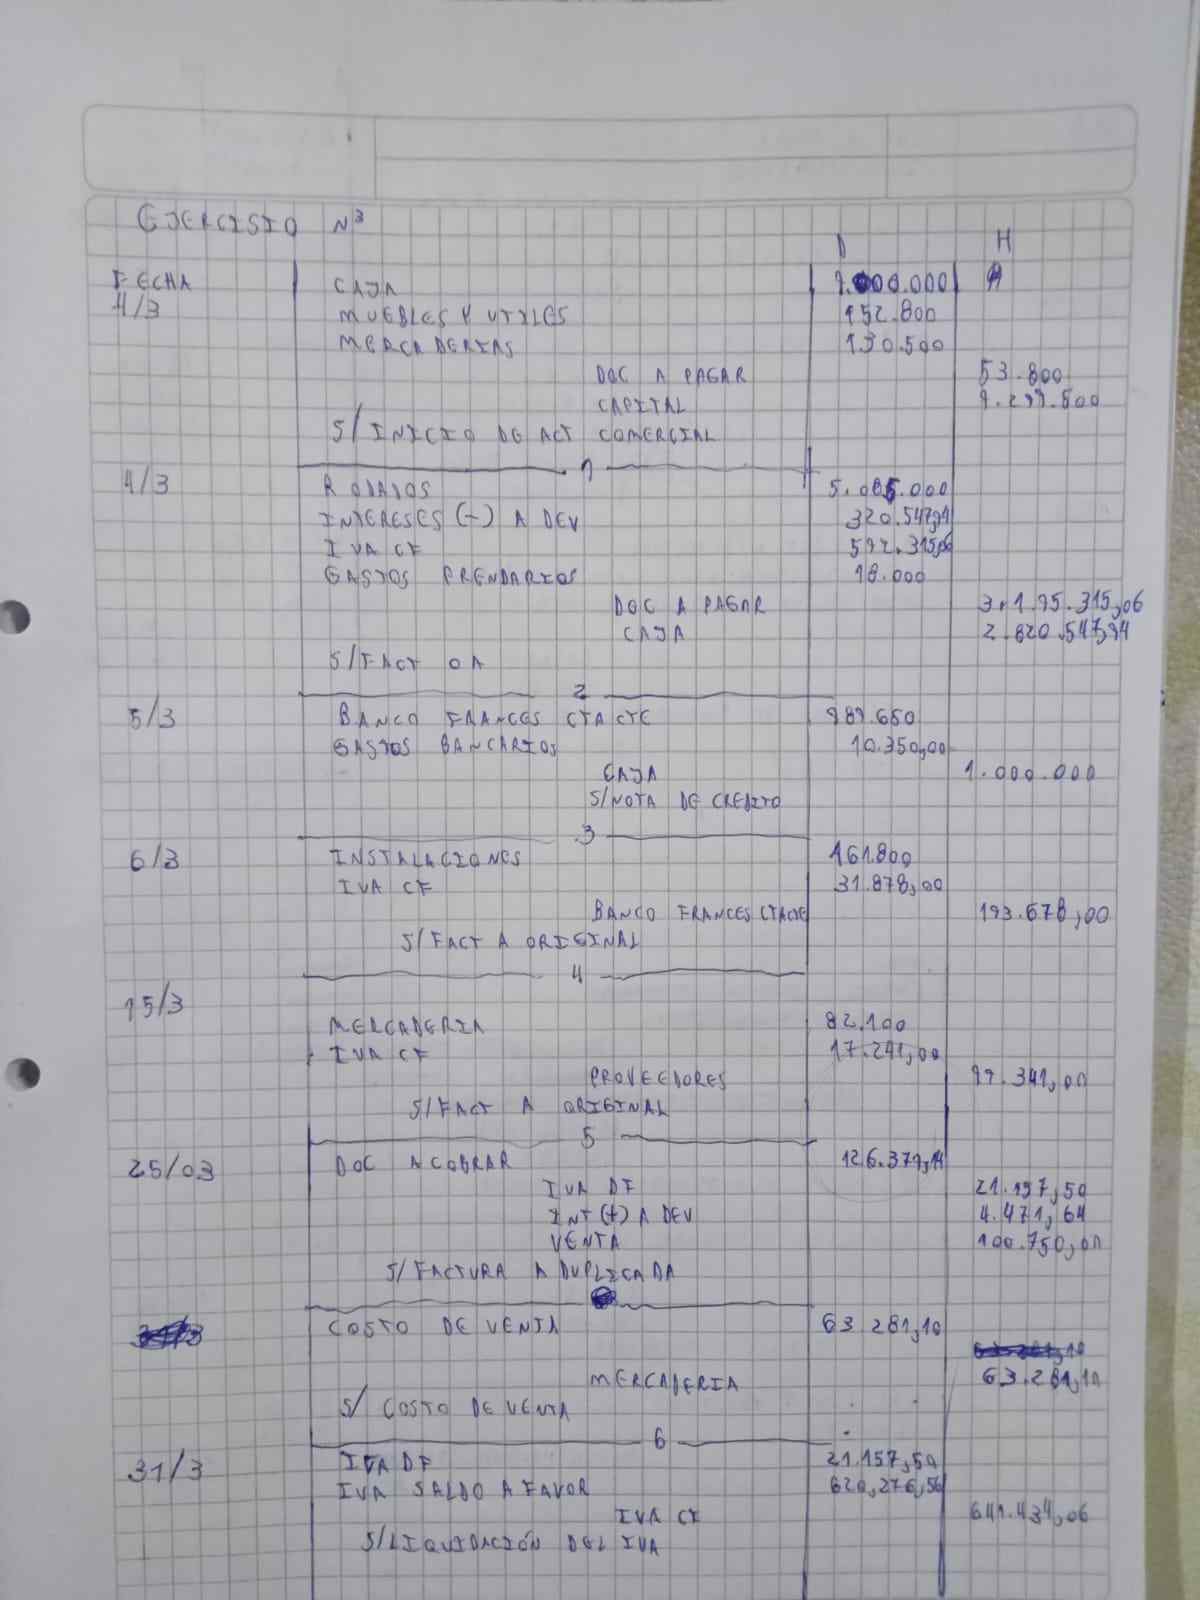 EJERCISIO N3
D H
FECHA CAJA .000.000
4/3 MUEBLES Y UTILES 152.800
MERCADERIAS 130.500
DOC A PAGAR 53.800
CAPITAL
S/ INICIO DE ACT COMERCIAL
1
4/3 RODADOS 5.085.000
INTERESES (-) A DEV 320.547,94
IVA CF 592.315,06
GASTOS PRENDARIOS 18.000
DOC A PAGAR 3.195.315,06
CAJA 2.820.547,94
S/FACT OA
2
5/3 BANCO FRANCES CTA CTE 989.650
GASTOS BANCARIOS 10.350,00
CAJA 1.000.000
S/NOTA DE CREDITO
3
6/3 INSTALACIONES 161.800
IVA CF 31.878,00
BANCO FRANCES CTACTE 193.678,00
S/FACT A ORIGINAL
4
15/3
MERCADERIA 82.100
IVA CF 17.241,00
PROVEEDORES 99.341,00
S/FACT A ORIGINAL
5
25/03 DOC A COBRAR 126.379,14
IVA DF 21.157,50
INT (+) A DEV 4.471,64
VENTA 100.750,00
S/FACTURA A DUPLICADA
COSTO DE VENTA 63 281,10
MERCADERIA 63.281,10
S/ COSTO DE VENTA
6
31/3 IVA DF 21.157,50
IVA SALDO A FAVOR 620,276,56
IVA CF 641.434,06
S/LIQUIDACIÓN DEL IVA